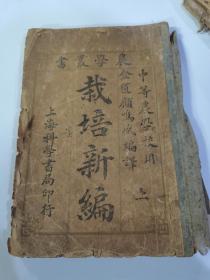 農學叢書
中等農學校用
金匱顧鳴盛編譯
栽培新編
上海科學書局印行